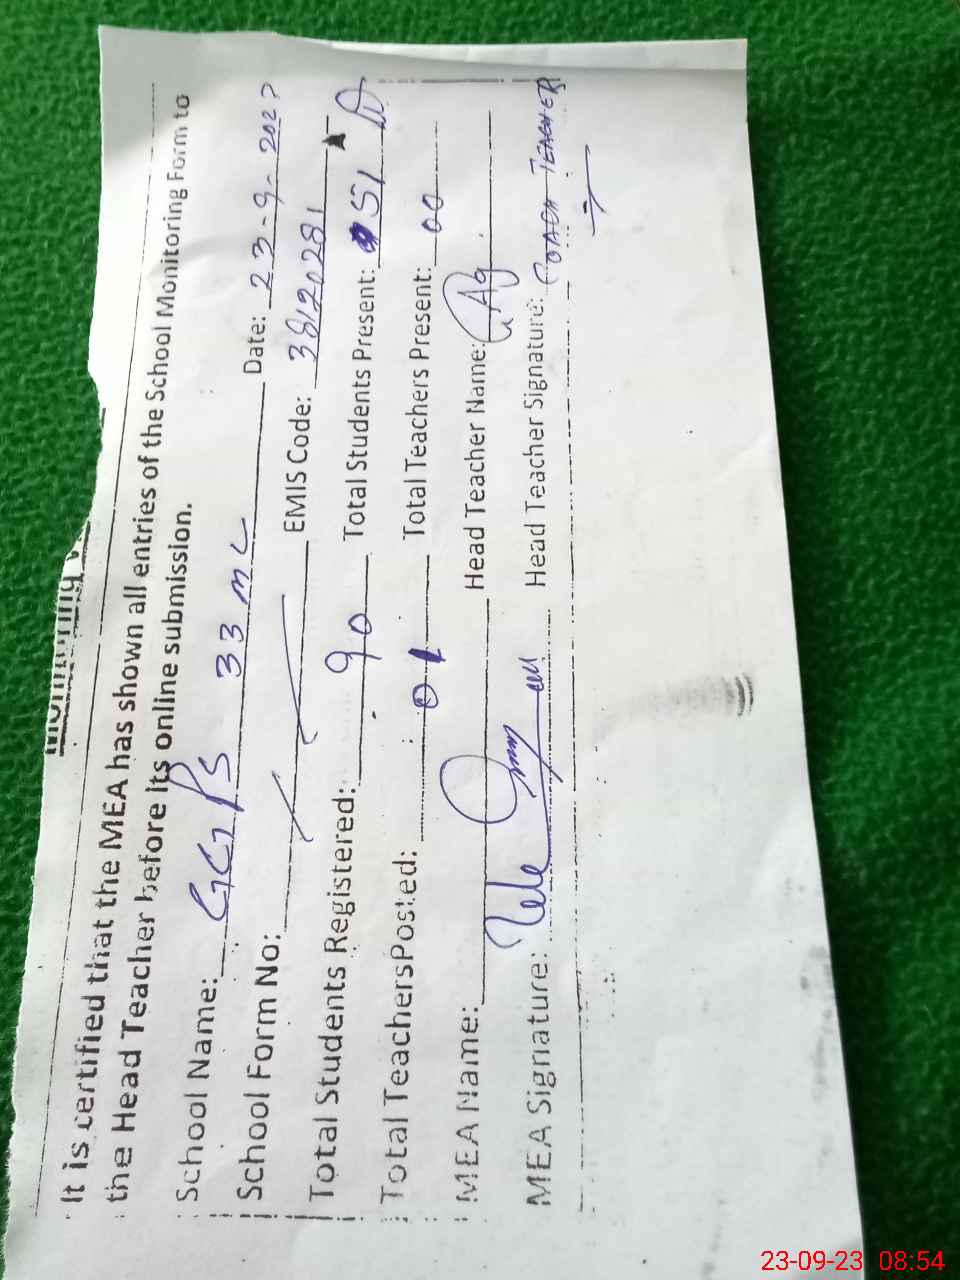 Monitoring
It is certified that the MEA has shown all entries of the School Monitoring Form to
the Head Teacher before its online submission.
School Name: GGPS 33 MC Date: 23-9-2023
School Form No: EMIS Code: 38120281
Total Students Registered: 90 Total Students Present: 51
Total TeachersPosted: 01 Total Teachers Present: 00
MEA Name: Head Teacher Name:
MEA Signature: Head Teacher Signature: COACH TEACHER
23-09-23 08:54